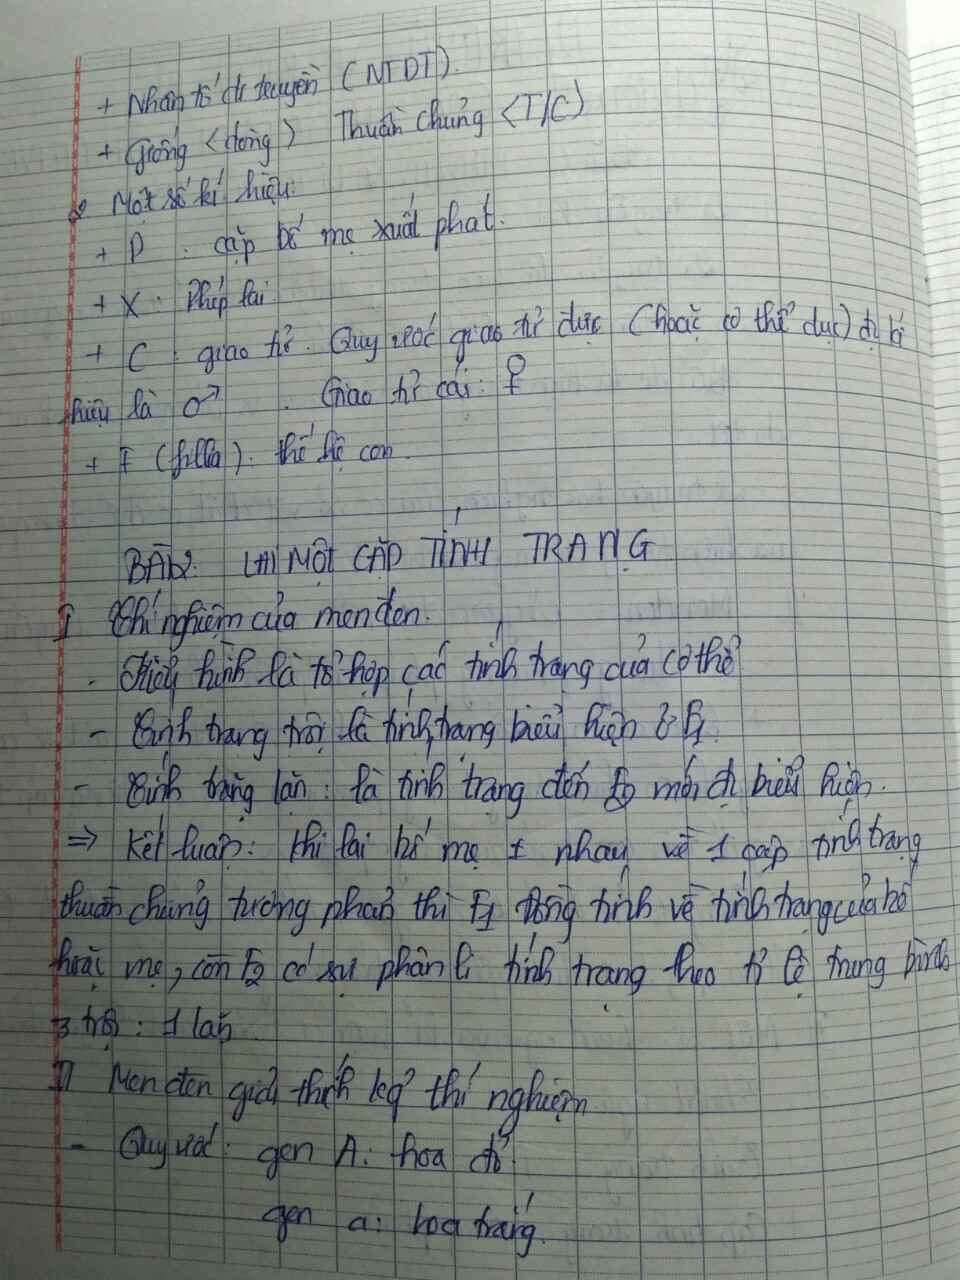 + Nhân tố di truyền (NTDT).
+ Giống <dòng> Thuần chủng <T/C>
Một số kí hiệu:
+ P : cặp bố mẹ xuất phát.
+ X : Phép lai
+ C : giao tử. Quy ước giao tử đực (hoặc cơ thể đực) đ kí
hiệu là ♂ . Giao tử cái: ♀
+ F (filia): thế hệ con.
BÀI 2: LAI MỘT CẶP TÍNH TRẠNG
I Thí nghiệm của menđen.
. Kiểu hình là tổ hợp các tính trạng của cơ thể
- Tính trạng trội là tính trạng biểu hiện ở F1.
- Tính trạng lặn : là tính trạng đến F2 mới đ biểu hiện.
=> Kết luận: Khi lai bố mẹ ≠ nhau về 1 cặp tính trạng
thuần chủng tương phản thì F1 đồng tính về tính trạng của bố
hoặc mẹ, còn F2 có sự phân li tính trạng theo tỉ lệ trung bình
3 trội : 1 lặn
II Menđen giải thích kq thí nghiệm
- Quy ước: gen A: hoa đỏ
gen a: hoa trắng.